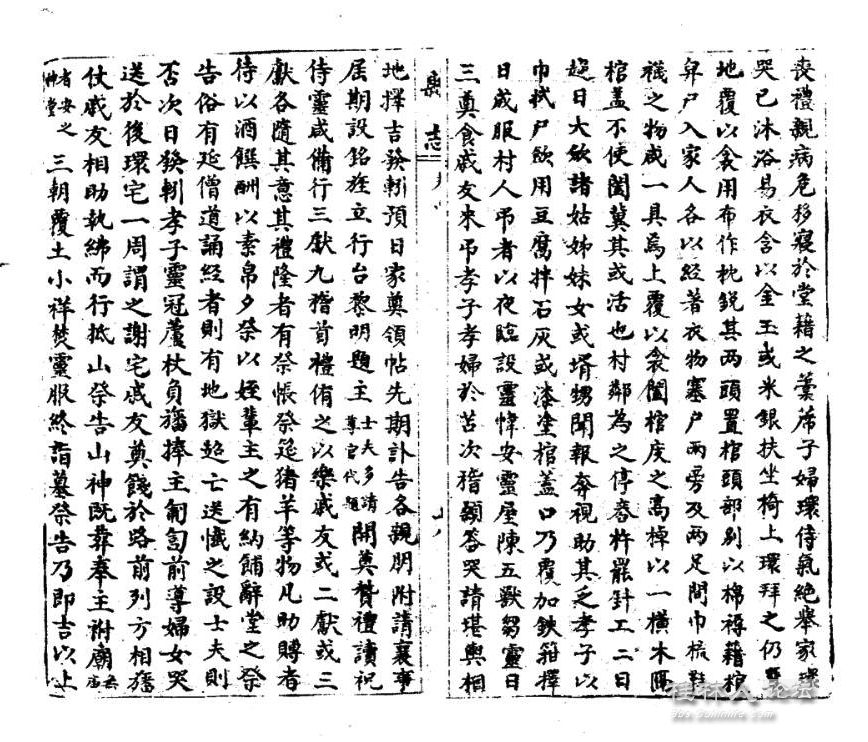 喪禮親病危移寢於堂藉之藁席子婦環侍氣絕舉家環
哭已沐浴易衣含以金玉或米銀扶坐椅上環拜之仍
地覆以衾用布作枕銳其兩頭置棺頭部別以棉褥藉棺
舁尸入家人各以經著衣物塞尸兩旁及兩足間巾梳鞋
襪之物咸一具焉上覆以衾闔棺庋之高棹以一橫木匽
棺蓋不使闔冀其或活也村鄰為之停舂杵罷針工二日
越日大斂諸姑姊妹女或壻甥聞報奔視助其乏孝子以
巾拭尸飲用豆腐拌石灰或漆塗棺蓋口乃覆加鉄箍擇
日成服村人弔者以夜臨設靈幃安靈屋陳五獸芻靈日
三奠食戚友來弔孝子孝婦於苫次稽顙答哭請堪輿相
輿志
地擇吉發靷預日家奠領帖先期訃告各親朋附請襄事
屆期設銘旌立行台黎明題主士夫多請尊官代題開奠贊禮讀祝
侍靈咸備行三獻九稽首禮侑之以樂戚友或二獻或三
獻各隨其意其禮隆者有祭帳祭筵猪羊等物凡助賻者
待以酒饌酬以素帛夕祭以姪輩主之有納餔辭堂之祭
告俗有延僧道誦經者則有地獄超亡送懺之設士夫則
否次日發靷孝子靈冠蘆杖負旛捧主匍匐前導婦女哭
送於後環宅一周謂之謝宅戚友奠餞於路前列方相旛
仗戚友相助執紼而行抵山祭告山神既葬奉主祔廟
者安之
三朝覆土小祥焚靈服終詣墓祭告乃即吉以上
桂林人论坛